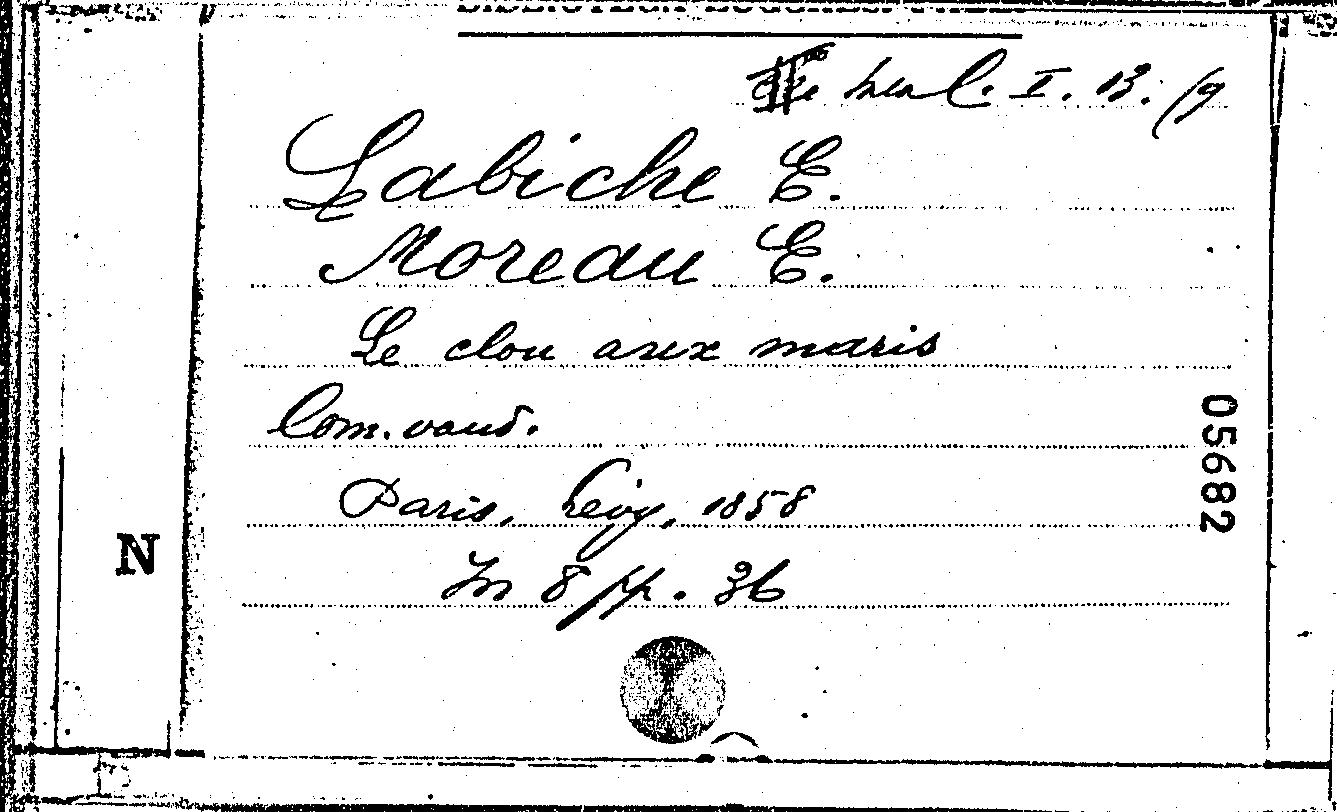 I. 13. /9
Labiche E.
Moreau E.
Le clou aux maris
Com. vaud.
Paris, Lévy, 1858
In 8 pp. 36
05682
N